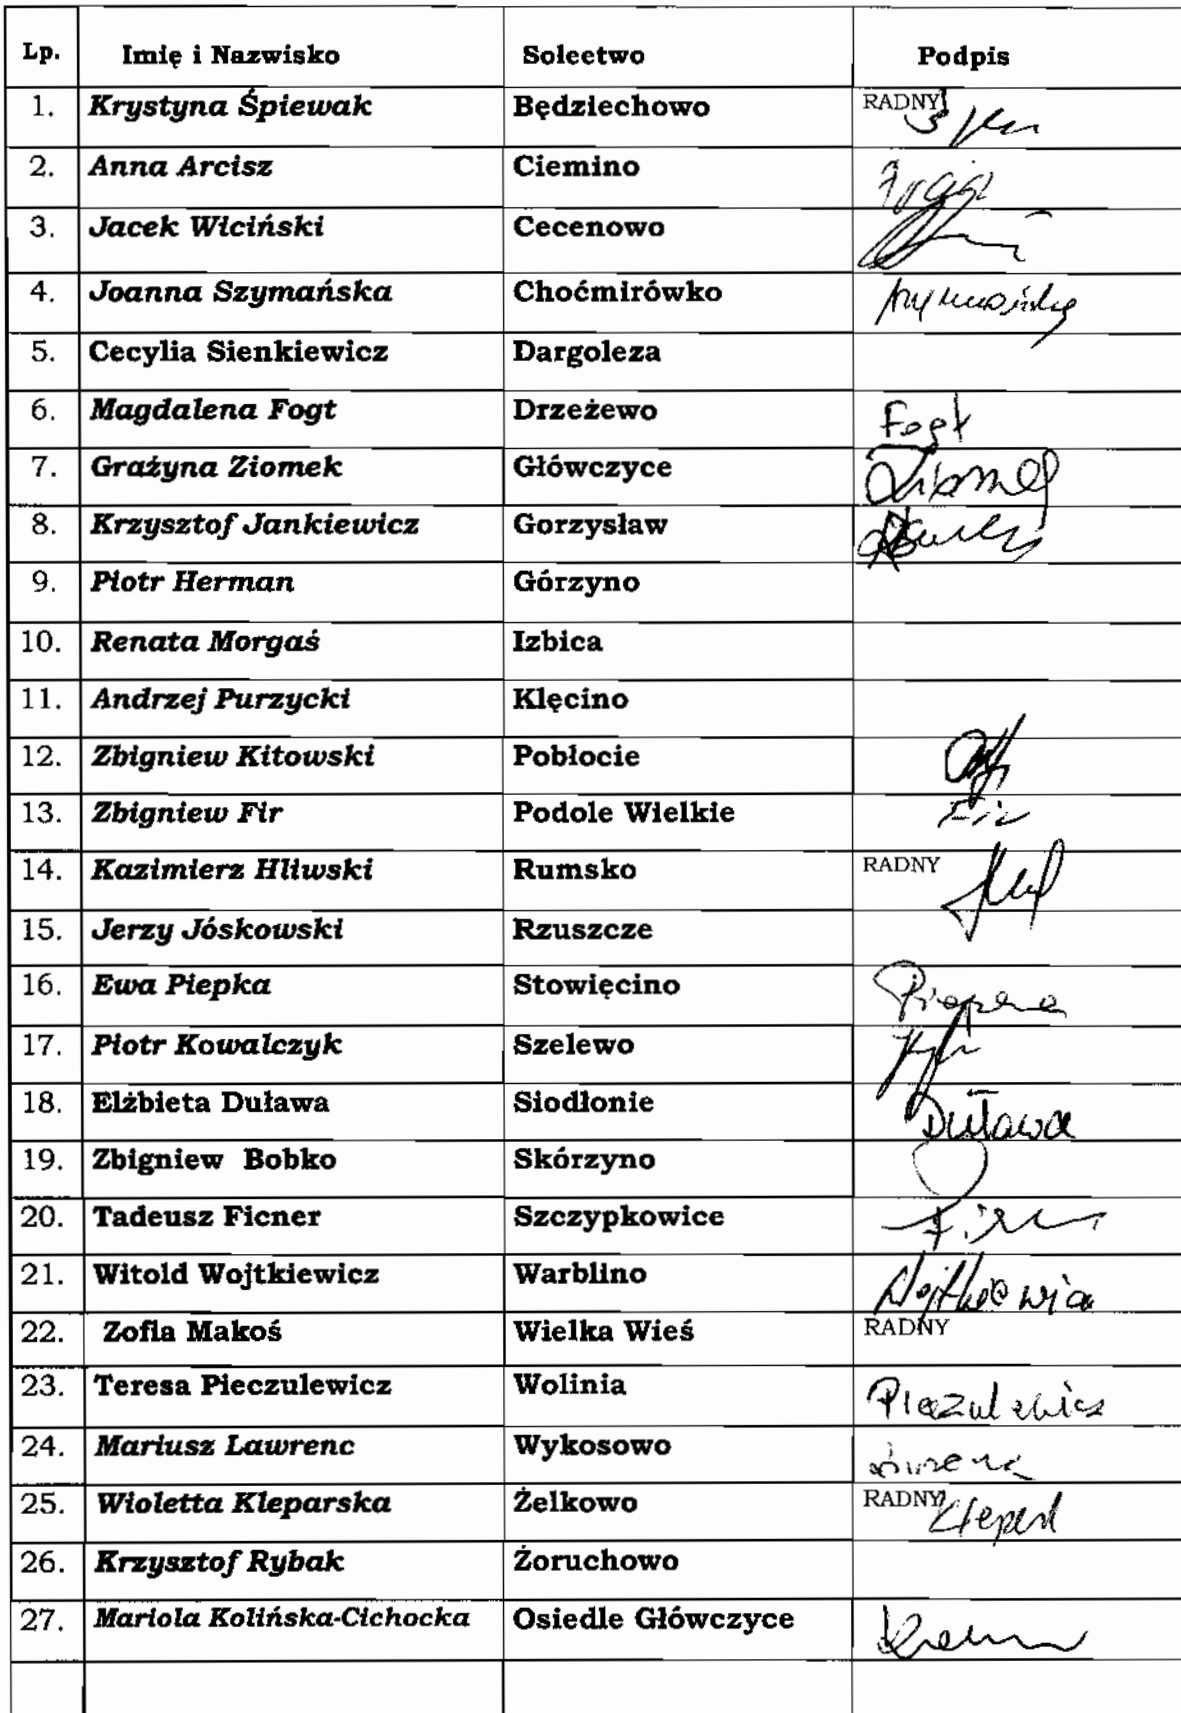 Lp. Imię i Nazwisko Sołectwo Podpis
1. Krystyna Śpiewak Będziechowo RADNY
2. Anna Arcisz Ciemino
3. Jacek Wiciński Cecenowo
4. Joanna Szymańska Choćmirówko
5. Cecylia Sienkiewicz Dargoleza
6. Magdalena Fogt Drzeżewo Fogt
7. Grażyna Ziomek Główczyce Ziomek
8. Krzysztof Jankiewicz Gorzysław
9. Piotr Herman Górzyno
10. Renata Morgaś Izbica
11. Andrzej Purzycki Klęcino
12. Zbigniew Kitowski Pobłocie
13. Zbigniew Fir Podole Wielkie Fir
14. Kazimierz Hliwski Rumsko RADNY
15. Jerzy Jóskowski Rzuszcze
16. Ewa Piepka Stowięcino
17. Piotr Kowalczyk Szelewo
18. Elżbieta Duława Siodłonie Duława
19. Zbigniew Bobko Skórzyno
20. Tadeusz Ficner Szczypkowice
21. Witold Wojtkiewicz Warblino
22. Zofia Makoś Wielka Wieś RADNY
23. Teresa Pieczulewicz Wolinia
24. Mariusz Lawrenc Wykosowo
25. Wioletta Kleparska Żelkowo RADNY
26. Krzysztof Rybak Żoruchowo
27. Mariola Kolińska-Cichocka Osiedle Główczyce